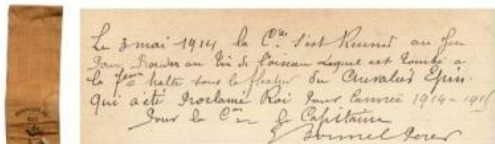 Le 3 mai 1914, la Cie s'est Réunie au Jeu
Pour Procéder au Tir de l'oiseau Lequel est tombé à
la halte sous la flèche du Chevalier Epin
qui a été Proclamé Roi Pour l'année 1914-1915
Pour la Cie Le Capitaine